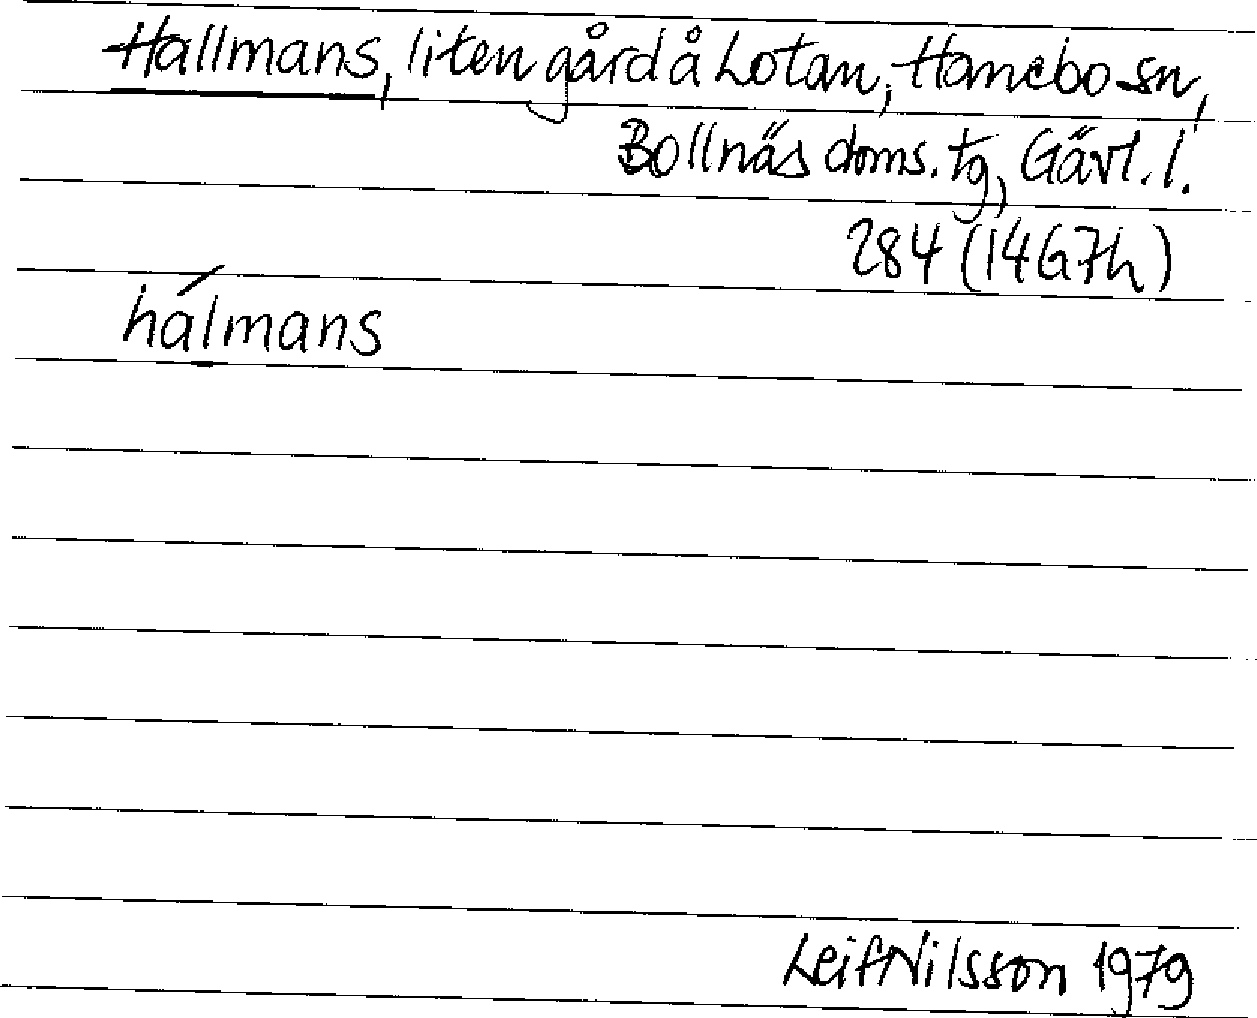 Hallmans, liten gård å Lotan, Hanebo sn,
Bollnäs doms. tg, Gävl. l.
284 (14G7h)
hálmans
Leif Nilsson 1979